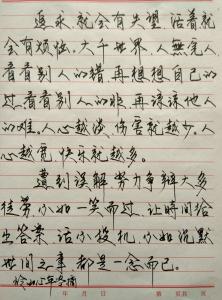 追求就会有失望，活着就
会有烦恼。大千世界，人无完人
看看别人的错，再想想自己的
过，看看别人的非，再谅谅他人
的难。人心越淡，伤害就越少，人
心越宽，快乐就越多。
遭到误解，努力争辩大多
徒劳，不如一笑而过，让时间给
出答案，话不投机，不如沉默
世间之事，都是一念而已。
年 月 日 第 页 共 页